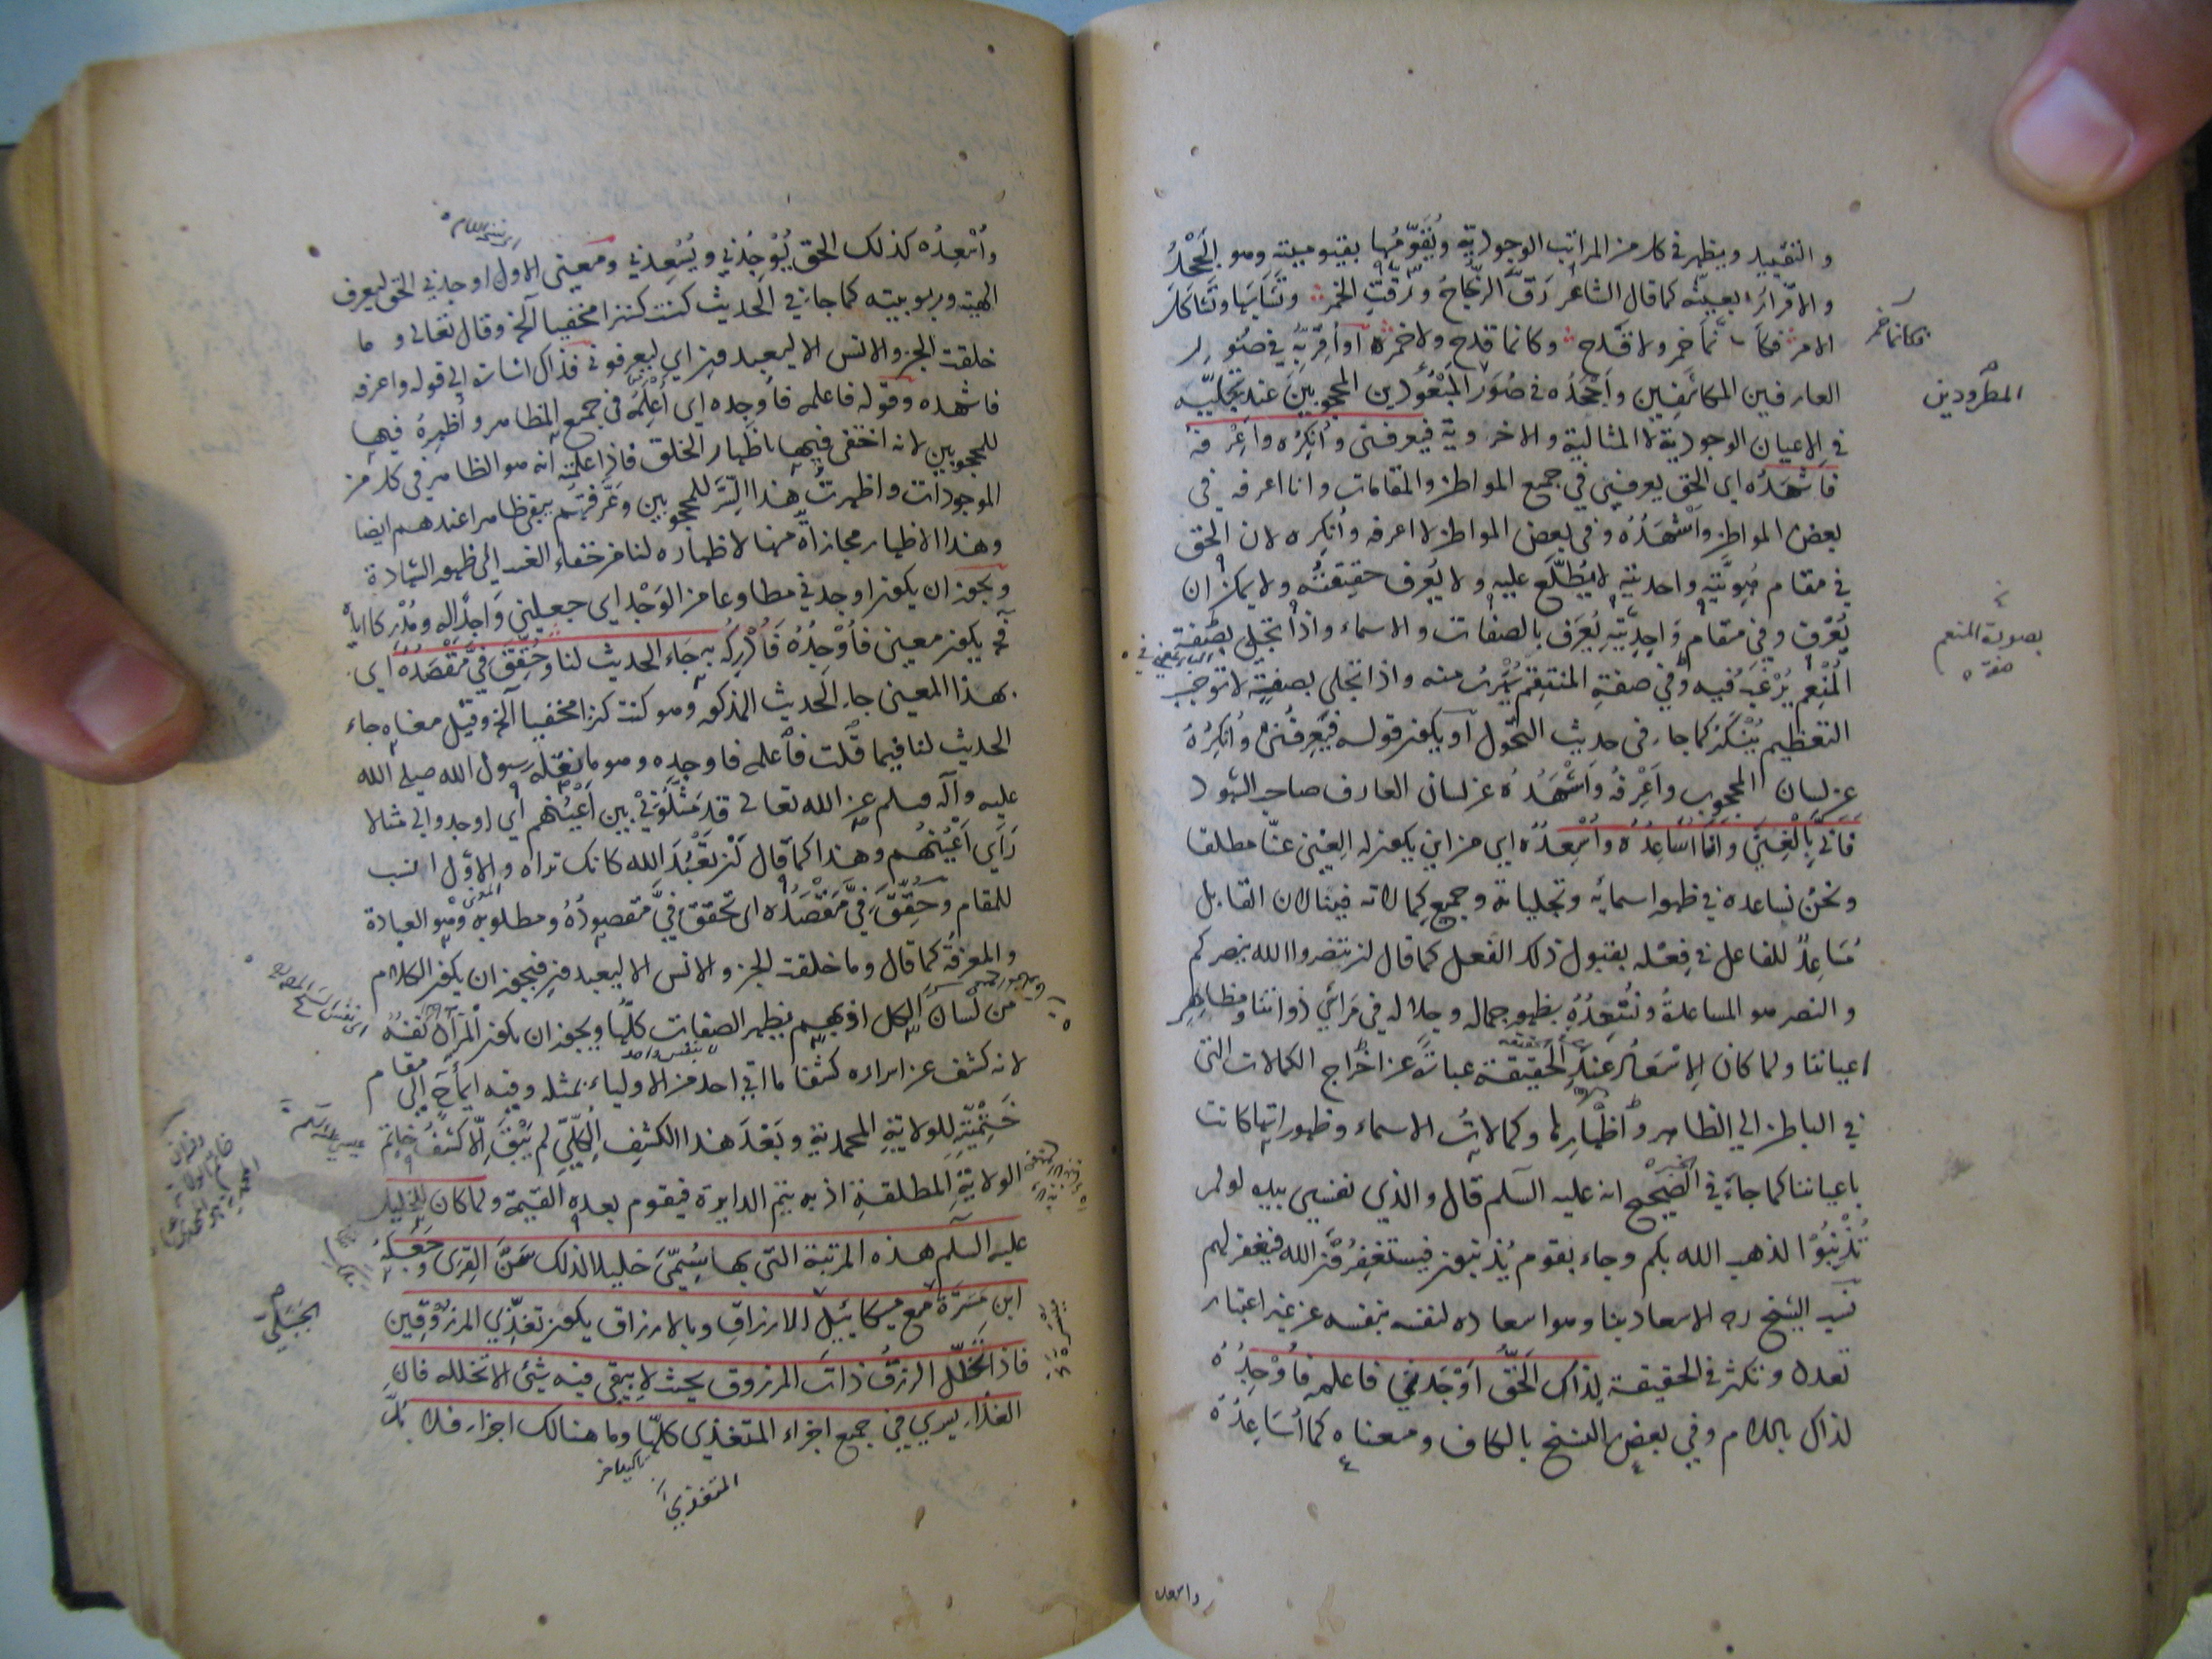 والتقييد ويظهر في كل من المراتب الوجودية ويقومها بقيوميته وهو الجحد
والاقرار بعينه كما قال الشاعر رَقَّ الزجاجُ ورقّتِ الخمر وتشابها وتشاكل
الامر فكأنما خمر ولا قدح وكانما قدح ولا خمر او أقرّ به في صور
العارفين المكاشفين وأجحده في صور المبعودين المحجوبين عند تجليه
في الاعيان الوجودية لا المثالية والاخروية فيعرفني وأنكره وأعرفه
فأشهده اي الحق يعرفني في جميع المواطن والمقامات وانا اعرفه في
بعض المواطن وأشهده وفي بعض المواطن لا اعرفه وأنكره لان الحق
في مقام هويته واحديته لا يطلع عليه ولا يعرف حقيقته ولا يمكن ان
يعرف وفي مقام واحديته يعرف بالصفات والاسماء واذا تجلى بصفة
المنعم يرغب فيه وفي صفة المنتقم يهرب منه واذا تجلى بصفة لا توجب
التعظيم ينكر كما جاء في حديث التحول او يكون قوله فيعرفني وأنكره
عن لسان المحجوب واعرفه وأشهده عن لسان العارف صاحب الشهود
فانّى بالغنى وانا اساعده وأسعده اي من اين يكون له الغنى عنّا مطلقا
ونحن نساعده في ظهور اسمائه وتجلياته وجميع كمالاته فينا لان القابل
مساعد للفاعل في فعله بقبول ذلك الفعل كما قال ان تنصروا الله ينصركم
والنصر هو المساعدة ونسعده بظهور جماله وجلاله في مرائي ذواتنا ومظاهر
اعياننا ولما كان الاسعاد عند الحقيقة عبارة عن اخراج الكمالات التي
في الباطن الي الظاهر واظهارها وكمالات الاسماء وظهوراتها كانت
باعياننا كما جاء في الصحيح انه عليه السلم قال والذي نفسي بيده لو لم
تذنبوا لذهب الله بكم وجاء بقوم يذنبون فيستغفرون الله فيغفر لهم
نسب الشيخ ره الاسعاد بنا وهو اسعاده لنفسه بنفسه عن غير اعتبار
تعدد وتكثر في الحقيقة لذاك الحق أوجدني فاعلمه فأوجده
لذاك باللام وفي بعض النسخ بالكاف ومعناه كما أساعده
فكانما خمر
المطرودين
بصورة المنعم
واسعده
وأسعده كذلك الحق يوجدني ويسعدني ومعنى الاول اوجدني الحق ليعرف
الهيته وربوبيته كما جاء في الحديث كنت كنزا مخفيا آلخ وقال تعالى وما
خلقت الجن والانس الا ليعبدون اي ليعرفوني فذاك اشارت الي قوله واعرفه
فاشهده وقوله فاعلمه فأوجده اي أعلمه في جميع المظاهر وأظهره فيها
للمحجوبين لانه اختفى فيها باظهار الخلق فاذا علمته انه هو الظاهر في كل من
الموجودات واظهرت هذا السر للمحجوبين وعرّفتهم يبقى ظاهرا عندهم ايضا
وهذا الاظهار مجازاة منا لاظهاره لنا من خفاء الغيب الي ظهور الشهادة
ويجوز ان يكون اوجدني مطاوعا من الوجد اي جعلني واجدا له ومدركا اياه
فح يكون معنى فأوجده فأدركه به جاء الحديث لنا وحقق فيّ مقصده اي
بهذا المعنى جاء الحديث المذكور وهو كنت كنزا مخفيا آلخ وقيل معناه جاء
الحديث لنا فيما قلت فاعلمه فاوجده وهو ما نقله رسول الله صلى الله
عليه وآله وسلم عن الله تعالى قد مثلوني بين أعينهم اي اوجدوا لي مثالا
رأي أعينهم وهذا كما قال ان تعبد الله كانك تراه والاول انسب
للمقام وحقق فيّ مقصده اى تحقق فيّ مقصوده ومطلوبه وهو العبادة
والمعرفة كما قال وما خلقت الجن والانس الا ليعبدون فيجوز ان يكون الكلام
من لسان الكل اذ بهم يظهر الصفات كلها ويجوز ان يكون المراد نفسه
لانه كشف عن اسراره كشفا ما اتي احد من الاولياء بمثله وفيه ايماء الى مقام
ختميته للولاية المحمدية وبعد هذا الكشف الكلي لم يبق الا كشف خاتم
الولاية المطلقة اذ به يتم الدايرة فيقوم بعده القيمة ولما كان للخليل
عليه السلم هذه المرتبة التي بها سمي خليلا لذلك سن القرى وجعله
ابن مسرة مع ميكائيل للارزاق وبالارزاق يكون تغذي المرزوقين
فاذا تخلل الرزق ذات المرزوق بحيث لا يبقى فيه شيئ الا تخلله فان
الغذاء يسري في جميع اجزاء المتغذى كلها وما هنالك اجزاء فلا بد
عيسى عليه السلم
الجبلي
المتغذي